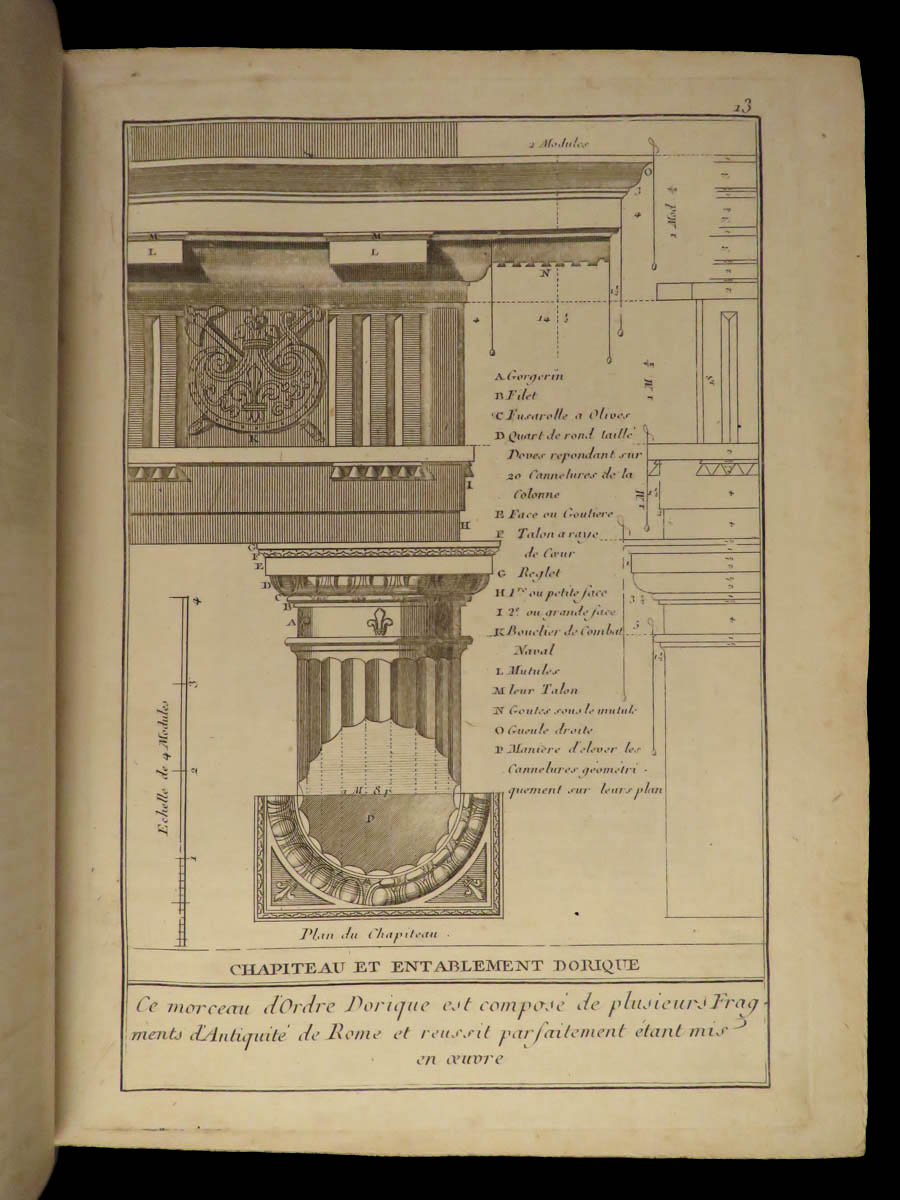 13
2 Modules
O
1 Mod
M
M
L
L
N
4
14 ½
K
A Gorgerin
B Filet
C Fusarolle a Olives
D Quart de rond taillé
Doves repondant sur
20 Cannelures de la
Colonne
E Face ou Goutiere
F Talon a raye
de Cœur
G Reglet
H 1re ou petite face
I 2e ou grande face
K Bouclier de Combat
Naval
L Mutules
M leur Talon
N Goutes sous le mutule
O Gueule droite
P Maniere d'elever les
Cannelures géometri-
quement sur leurs plan
I
H
G
F
E
D
C
B
A
4
3
2
1
Echelle de 4 Modules
P
Plan du Chapiteau.
CHAPITEAU ET ENTABLEMENT DORIQUE
Ce morceau d'Ordre Dorique est composé de plusieurs Frag-
ments d'Antiquité de Rome et reussit parfaitement étant mis
en œuvre